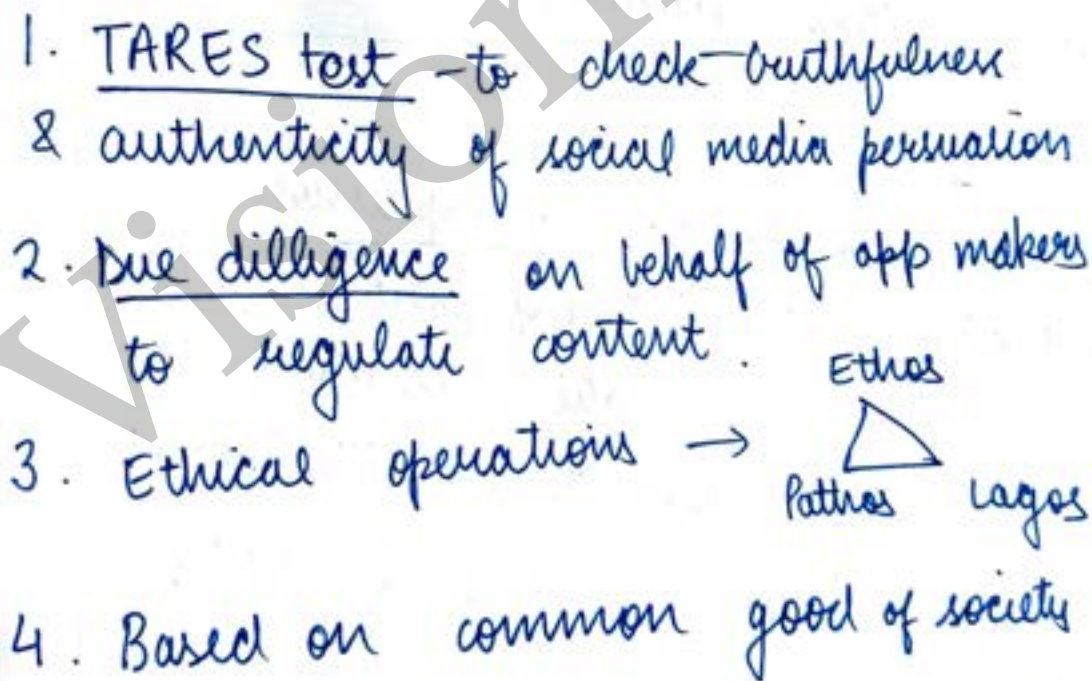 1. TARES test - to check truthfulness
& authenticity of social media persuasion
2. Due dilligence on behalf of app makers
to regulate content.
3. Ethical operations →
Ethos
Pathos Lagos
4. Based on common good of society
Vision